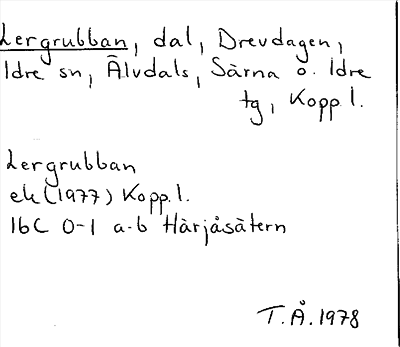 Lergrubban, dal, Drevdagen,
Idre sn, Älvdals, Särna o. Idre
tg, Kopp. l.
Lergrubban
ek (1977) Kopp. l.
16C 0-1 a-b Härjåsätern
T.Å. 1978